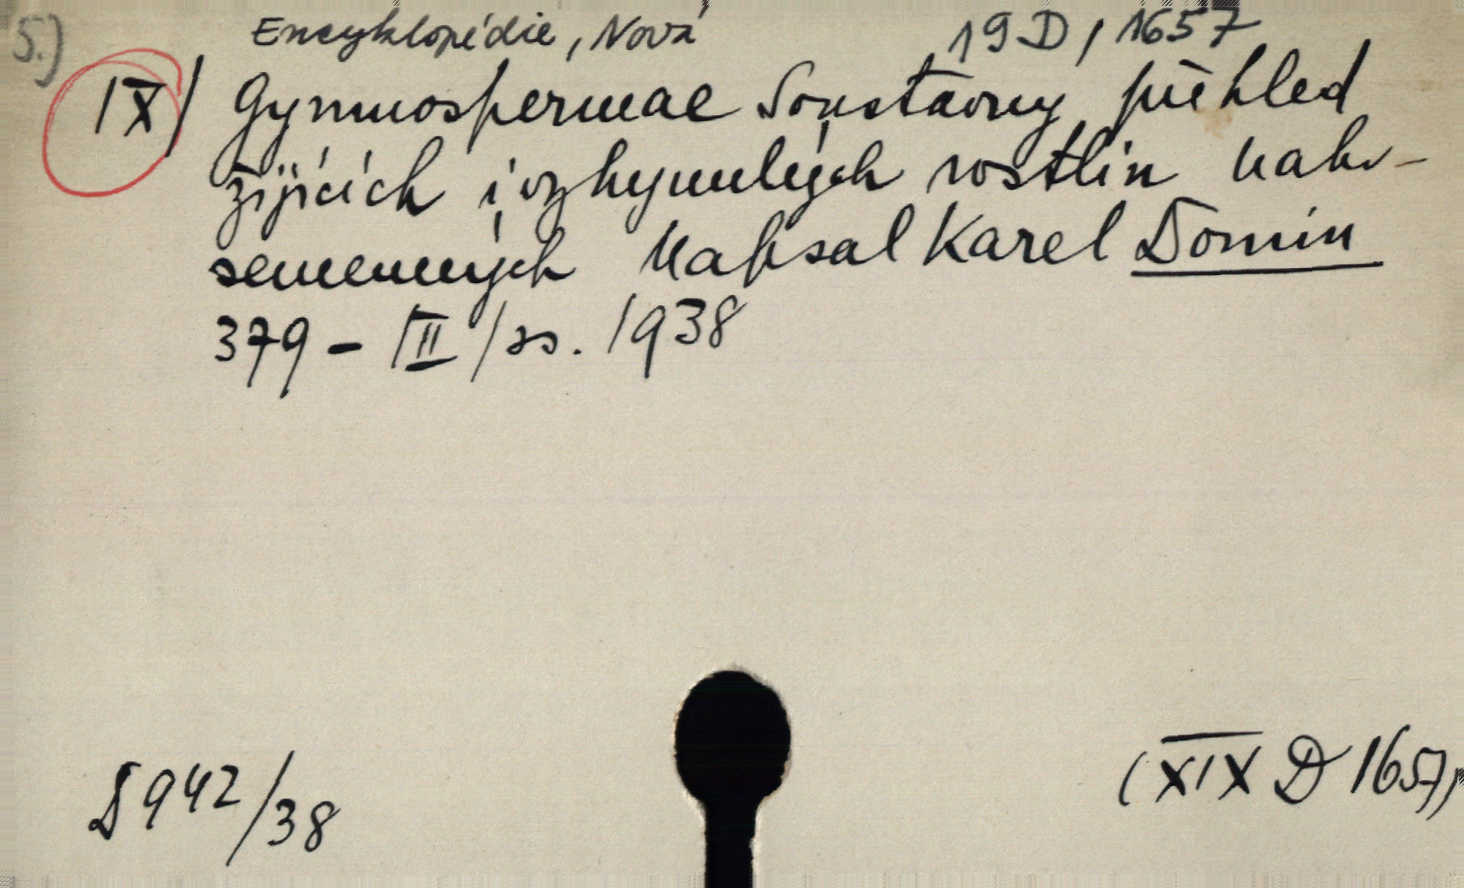 5.) Encyklopédie, Nová 19 D, 1657
IX) Gymnospermae Soustavný přehled
žijících i vyhynulých rostlin naho-
semenných Napsal Karel Domin
379 - III / ss. 1938
D 942/38 (XIX D 1657)